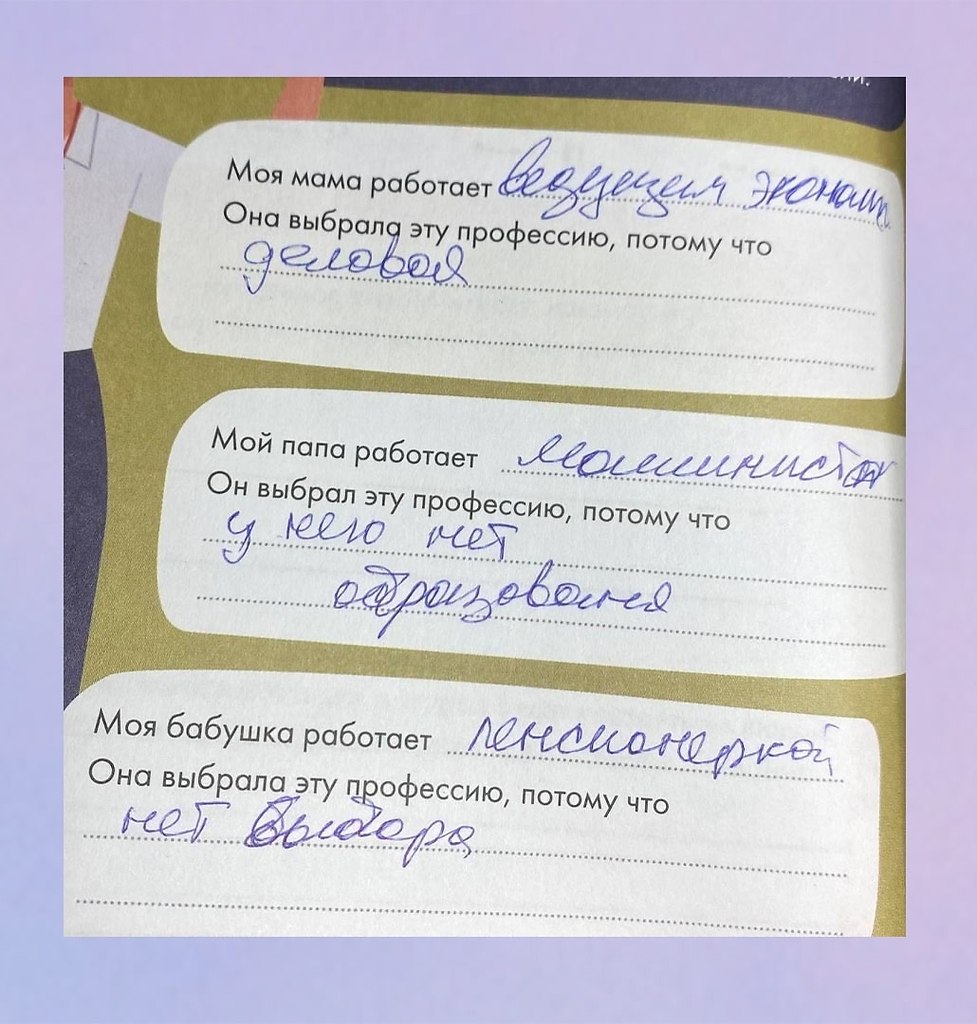 Моя мама работает ведущим эконом
Она выбрала эту профессию, потому что
деловая
Мой папа работает машинист
Он выбрал эту профессию, потому что
у него нет
образования
Моя бабушка работает пенсионеркой
Она выбрала эту профессию, потому что
нет выбора